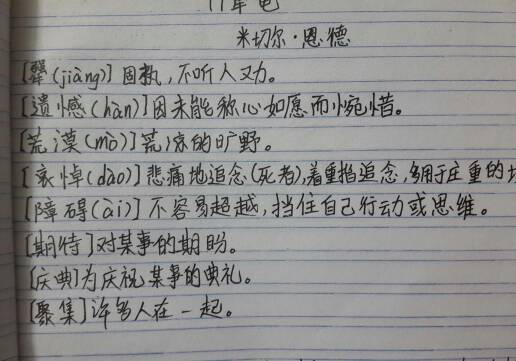 米切尔·恩德
[犟(jiàng)]固执,不听人劝。
[遗憾(hàn)]因未能称心如愿而惋惜。
[荒漠(mò)]荒凉的旷野。
[哀悼(dào)]悲痛地追念(死者),着重指追念,多用于庄重的
[障碍(ài)]不容易超越,挡住自己行动或思维。
[期待]对某事的期盼。
[庆典]为庆祝某事的典礼。
[聚集]许多人在一起。